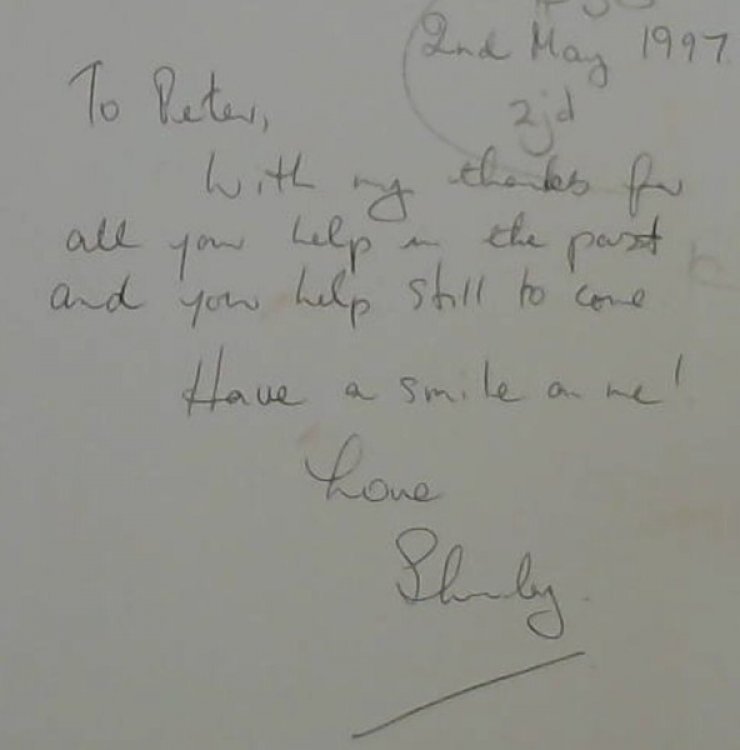 2nd May 1997
2jd
To Peter,
With my thanks for
all your help in the past
and your help still to come
Have a smile on me!
Love
Shirley.